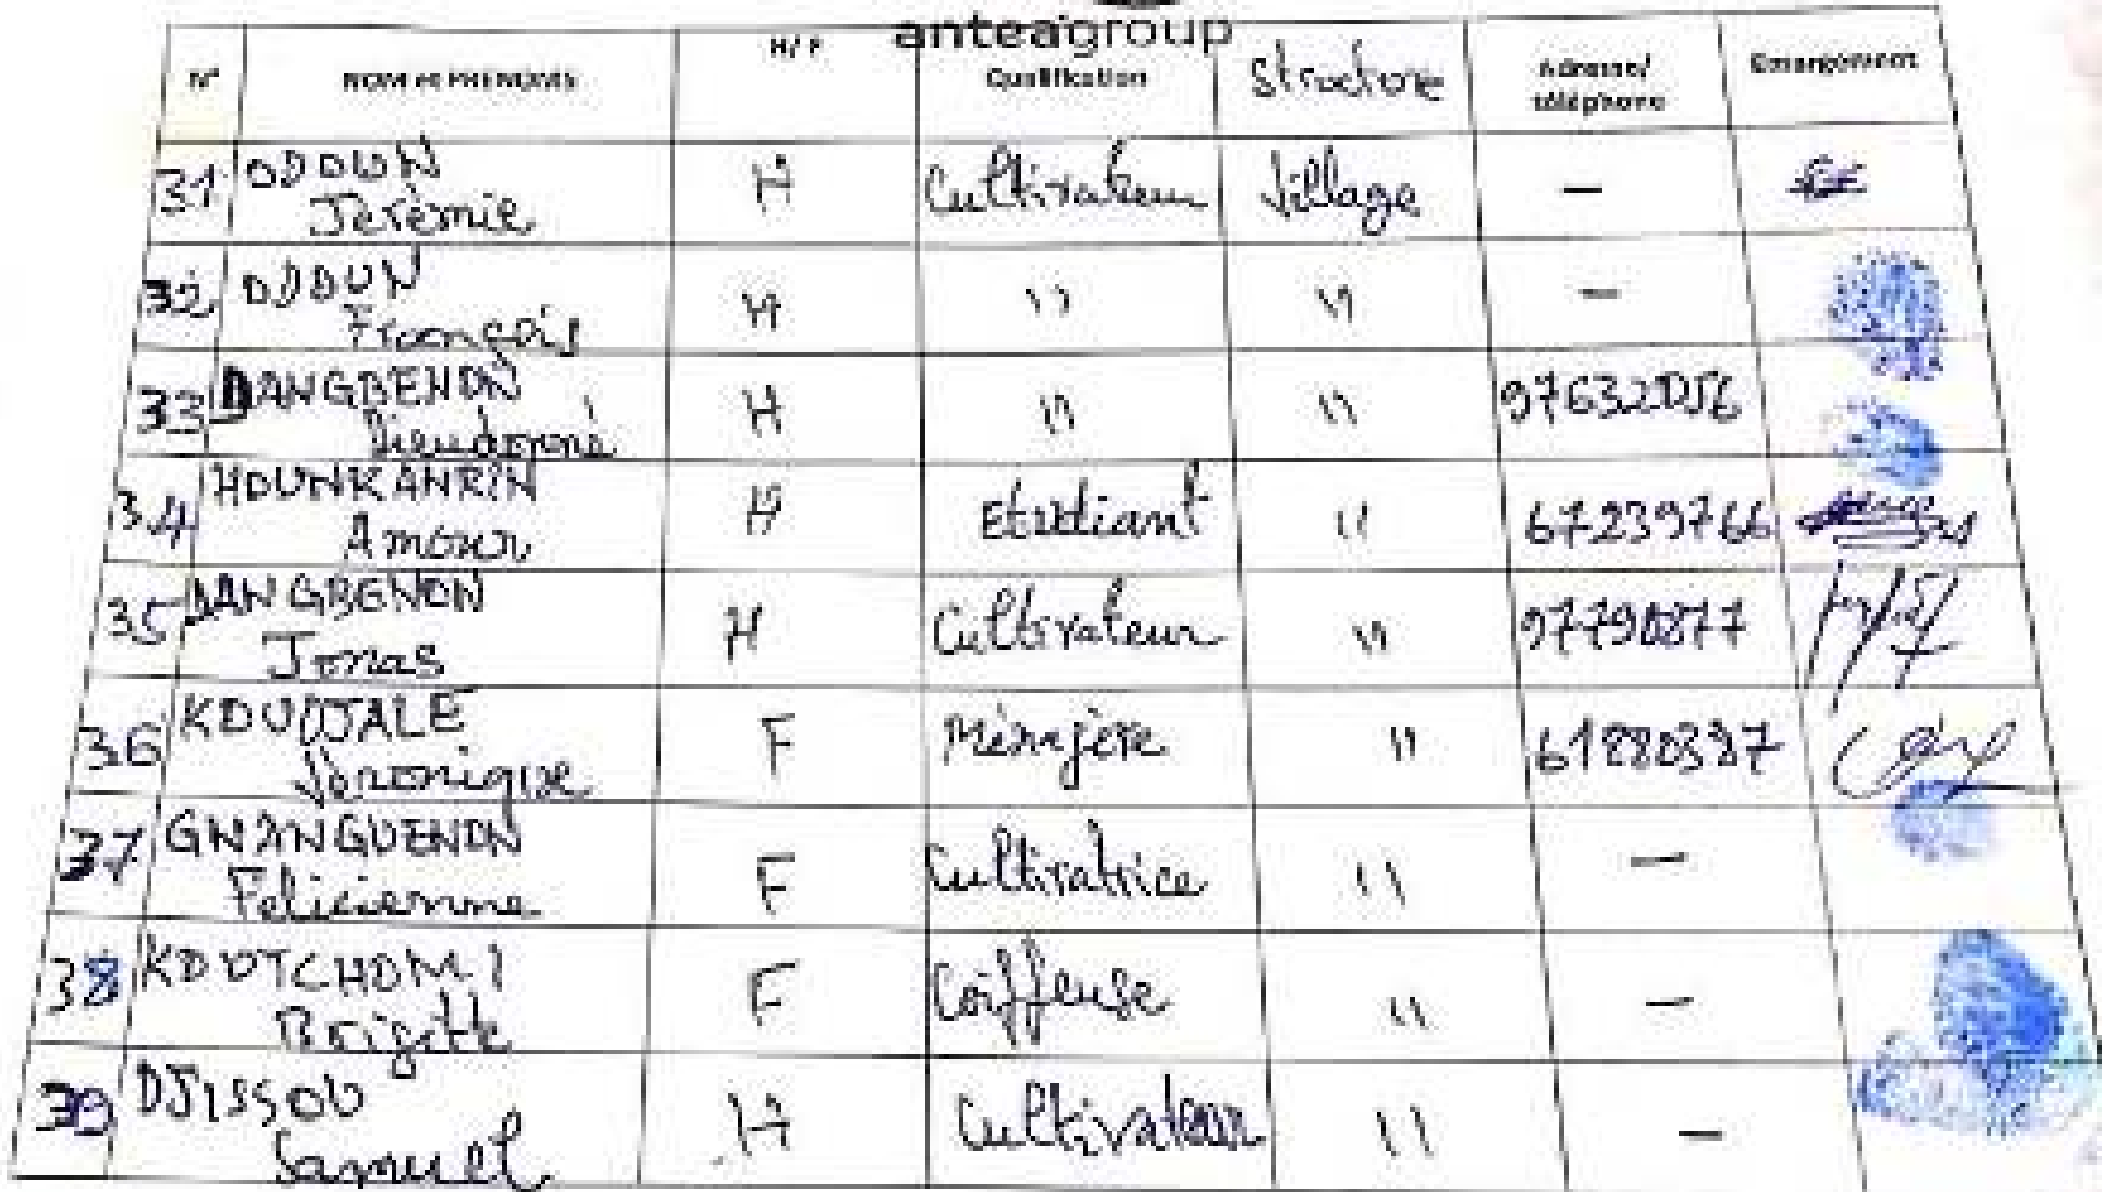 anteagroup
N° NOM et PRENOMS H/F Qualification Structure Adresse/ téléphone Emargement
31 ODOUN Jérémie H Cultivateur Village —
32 ODOUN François H '' '' —
33 DANGBENON Dieudonné H '' ''
34 HOUNKANRIN Amour H Etudiant '' 67239766
35 DANGBENON Jonas H Cultivateur '' 97790877
36 Véronique F Ménagère ''
37 GNANGUENON Félicienne F Cultivatrice '' —
38 KOUTCHOMI Brigette F Coiffeuse '' —
39 DJISSOU Samuel H Cultivateur '' —